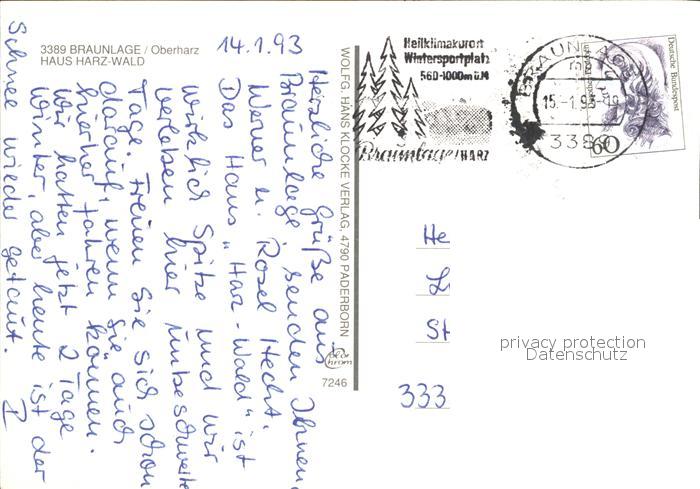 3389 BRAUNLAGE / Oberharz
HAUS HARZ-WALD
14.1.93
Herzliche Grüße aus
Braunlage senden Ihnen
Werner u. Rosel Hecht.
Das Haus "Harz-Wald" ist
wirklich Spitze und wir
verleben hier unbeschwerte
Tage. Freuen Sie sich schon
darauf, wenn Sie auch
hierher fahren können.
Wir hatten jetzt 2 Tage
Winter, aber heute ist der
Schnee wieder getaut.
WOLFG. HANS KLOCKE VERLAG, 4790 PADERBORN
7246
Heilklimakurort
Wintersportplatz
560-1000m ü.M
Braunlage/HARZ
BRAUNLAGE
15.-1.93-19
3389
Deutsche Bundespost
60
He
St
333
privacy protection
Datenschutz